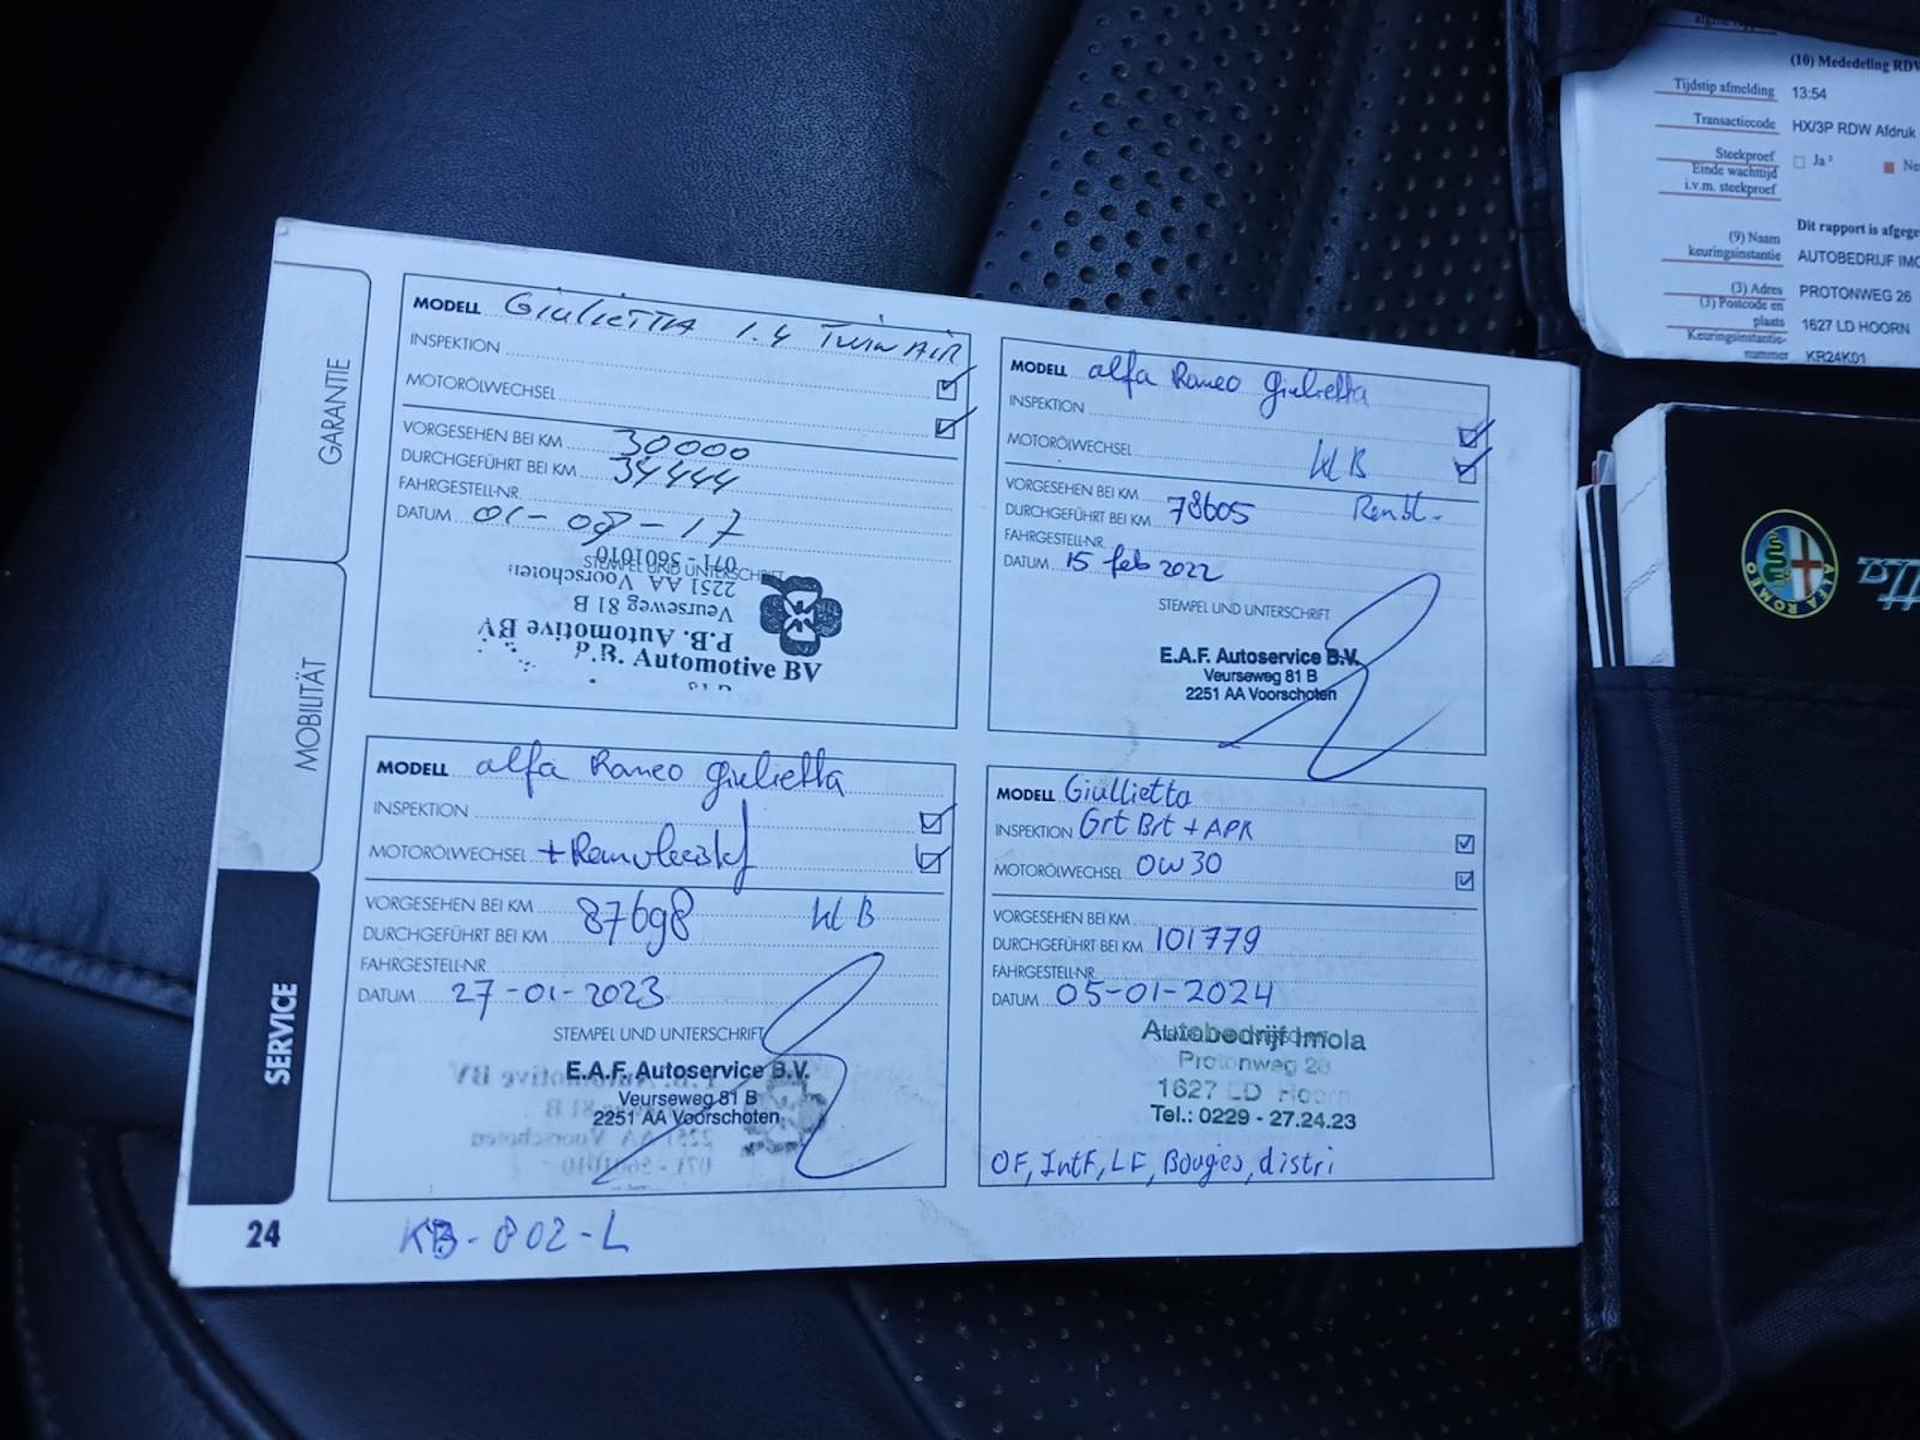 GARANTIE
MOBILITÄT
SERVICE
MODELL Giulietta 1.4 Twin Air
INSPEKTION
MOTORÖLWECHSEL
VORGESEHEN BEI KM 30000
DURCHGEFÜHRT BEI KM 34444
FAHRGESTELL-NR.
DATUM 01-08-17
STEMPEL UND UNTERSCHRIFT
071 - 5601010
2251 AA Voorschoten
Veurseweg 81 B
P.B. Automotive BV
P.B. Automotive BV
MODELL alfa Romeo giulietta
INSPEKTION
MOTORÖLWECHSEL KLB
VORGESEHEN BEI KM
DURCHGEFÜHRT BEI KM 78605
FAHRGESTELL-NR.
DATUM 15 feb 2022
STEMPEL UND UNTERSCHRIFT
E.A.F. Autoservice B.V.
Veurseweg 81 B
2251 AA Voorschoten
MODELL alfa Romeo giulietta
INSPEKTION
MOTORÖLWECHSEL
VORGESEHEN BEI KM KLB
DURCHGEFÜHRT BEI KM 87698
FAHRGESTELL-NR.
DATUM 27-01-2023
STEMPEL UND UNTERSCHRIFT
E.A.F. Autoservice B.V.
Veurseweg 81 B
2251 AA Voorschoten
MODELL Giullietta
INSPEKTION Grt Brt + APK
MOTORÖLWECHSEL 0W30
VORGESEHEN BEI KM
DURCHGEFÜHRT BEI KM 101779
FAHRGESTELL-NR.
DATUM 05-01-2024
Autobedrijf Imola
Protonweg 26
1627 LD Hoorn
Tel.: 0229 - 27.24.23
OF, IntF, LF, Bougies, distri
24
KB-802-L
(10) Mededeling RDW
Tijdstip afmelding 13:54
Transactiecode HX/3P RDW Afdruk
Steekproef Ja
Einde wachttijd
i.v.m. steekproef
Dit rapport is afgege
(9) Naam
keuringsinstantie AUTOBEDRIJF IMO
(3) Adres PROTONWEG 26
(3) Postcode en
plaats 1627 LD HOORN
Keuringsinstantie-
nummer KR24K01
ALFA ROMEO